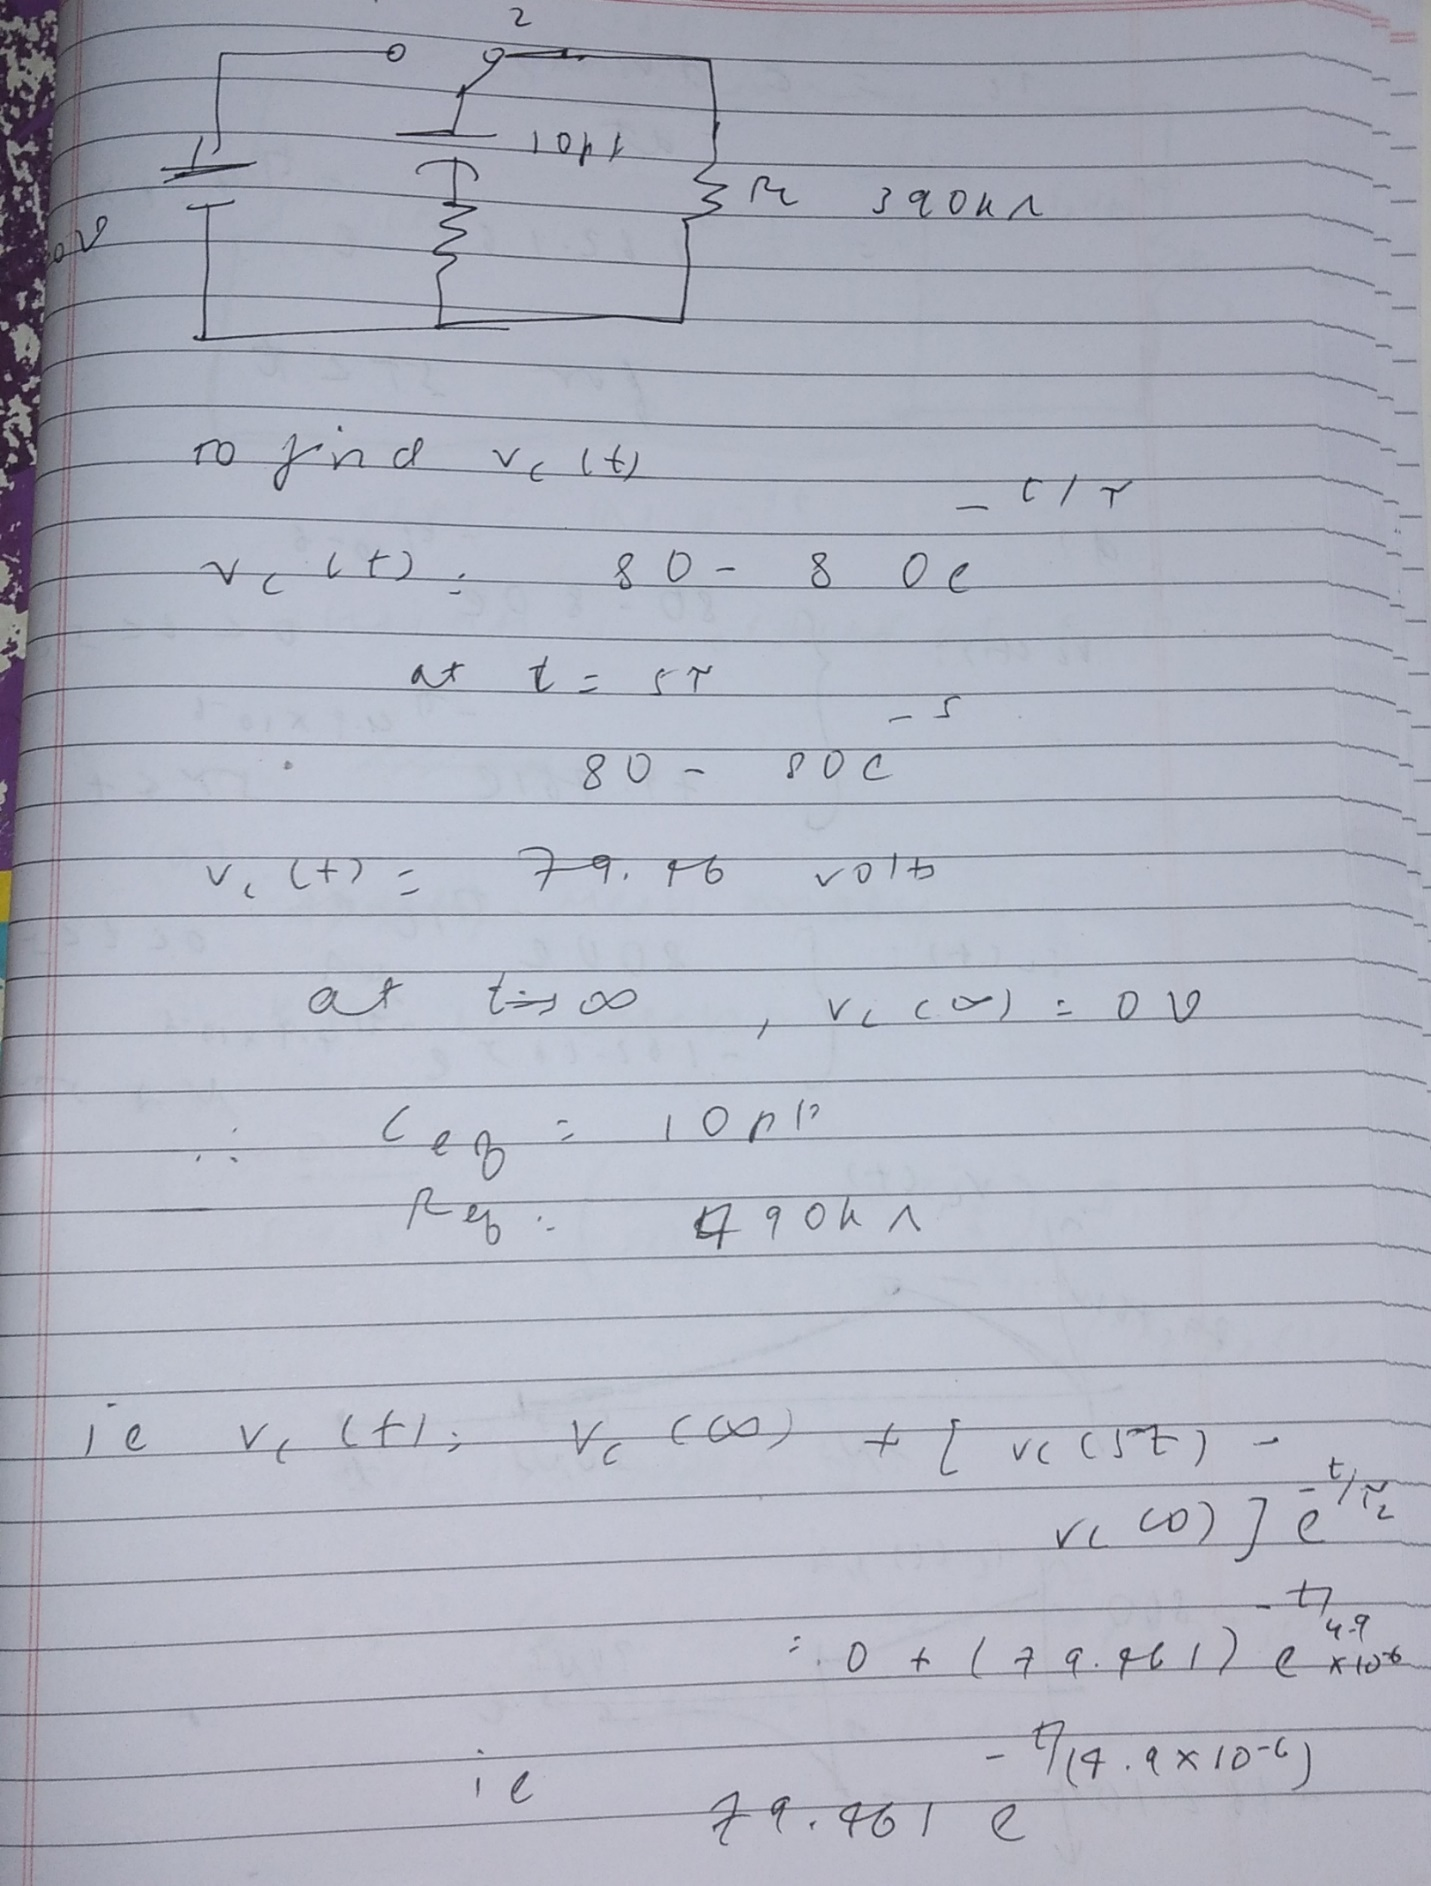 2
10pf
R 390kΩ
to find vc (t)
vc (t) = 80 - 80e^-t/τ
at t = 5τ
80 - 80e^-5
vc (t) = 79.46 volts
at t→∞, vc (∞) = 0V
∴ Ceq = 10pF
Req = 490kΩ
ie vc (t) = vc (∞) + [vc (5τ) -
vc (0)] e^-t/τ2
= 0 + (79.461) e^-t/4.9 x10^-6
ie 79.461 e^-t/(4.9x10^-6)